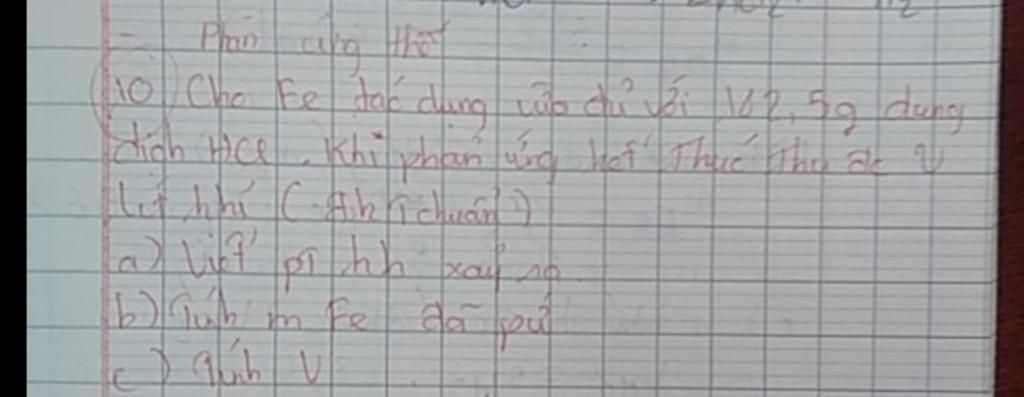 - Phản ứng thế
10) Cho Fe tác dụng vừa đủ với 182,5g dung
dịch HCl. Khi phản ứng kết thúc thu đc V
lít khí (ở đk tchuẩn)
a) Viết pt hh xảy ra
b) Tính m Fe đã pứ
c) Tính V